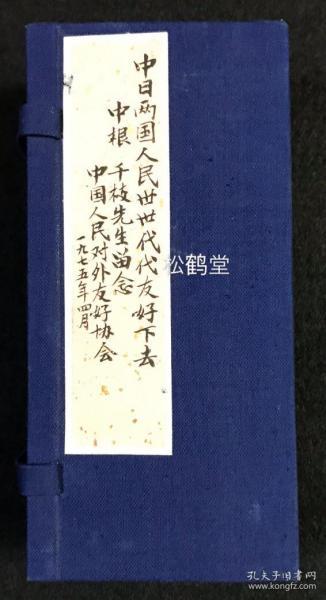 中日两国人民世世代代友好下去
中根 千枝先生留念
中国人民对外友好协会
一九七五年四月
松鹤堂
孔夫子旧书网
www.kongfz.com